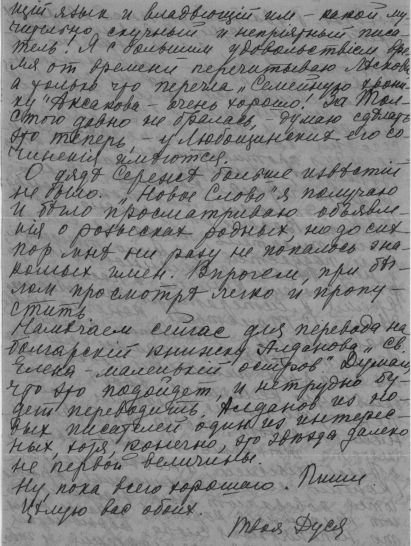 щій язык и владѣющій им – какой му
чительно скучный и непріятный писа-
тель! Я с большим удовольствіем вре
мя от времени перечитываю Лѣскова
а только что перечла „Семейную хрони-
ку" Аксакова – очень хорошо! За Тол-
стого давно не бралась – думаю сдѣлать
это теперь, – у Любощинских его со
чиненія имѣются.
О дядѣ Сережѣ больше извѣстій
не было. „Новое Слово" я получаю
и бѣгло просматриваю объявле-
нія о розысках родных, но до сих
пор мнѣ ни разу не попалось зна-
комых имен. Впрочем, при бѣг-
лом просмотрѣ легко и пропу-
стить.
Намѣчаем сейчас для перевода на
болгарскій книжку Алданова „Св.
Елена – маленькій остров". Думаю,
что это подойдет, и нетрудно бу-
дет переводить. Алданов из но-
вых писателей один из интерес-
ных, хотя, конечно, это звѣзда далеко
не первой величины.
Ну, пока всего хорошаго. Пиши.
Цѣлую вас обоих.
Твоя Дуся